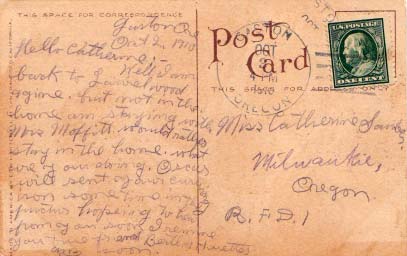 THIS SPACE FOR CORRESPONDENCE
Gaston Ore
Oct 2, 1910
Hello Catherine;-
Well I am
back to Laurelwood
again. but not in the
home am staying with
Miss Moffitt. would rather
stay in the home. what
are you doing. Oscar
will sent you
some time
hopeing to hear
from you soon I remain
you true friend
soon.
Post Card
THIS SPACE FOR ADDRESS ONLY
GASTON
OCT
1910
OREGON
U.S. POSTAGE
ONE CENT
Miss Catherine
Milwaukie,
Oregon.
R.F.D. 1